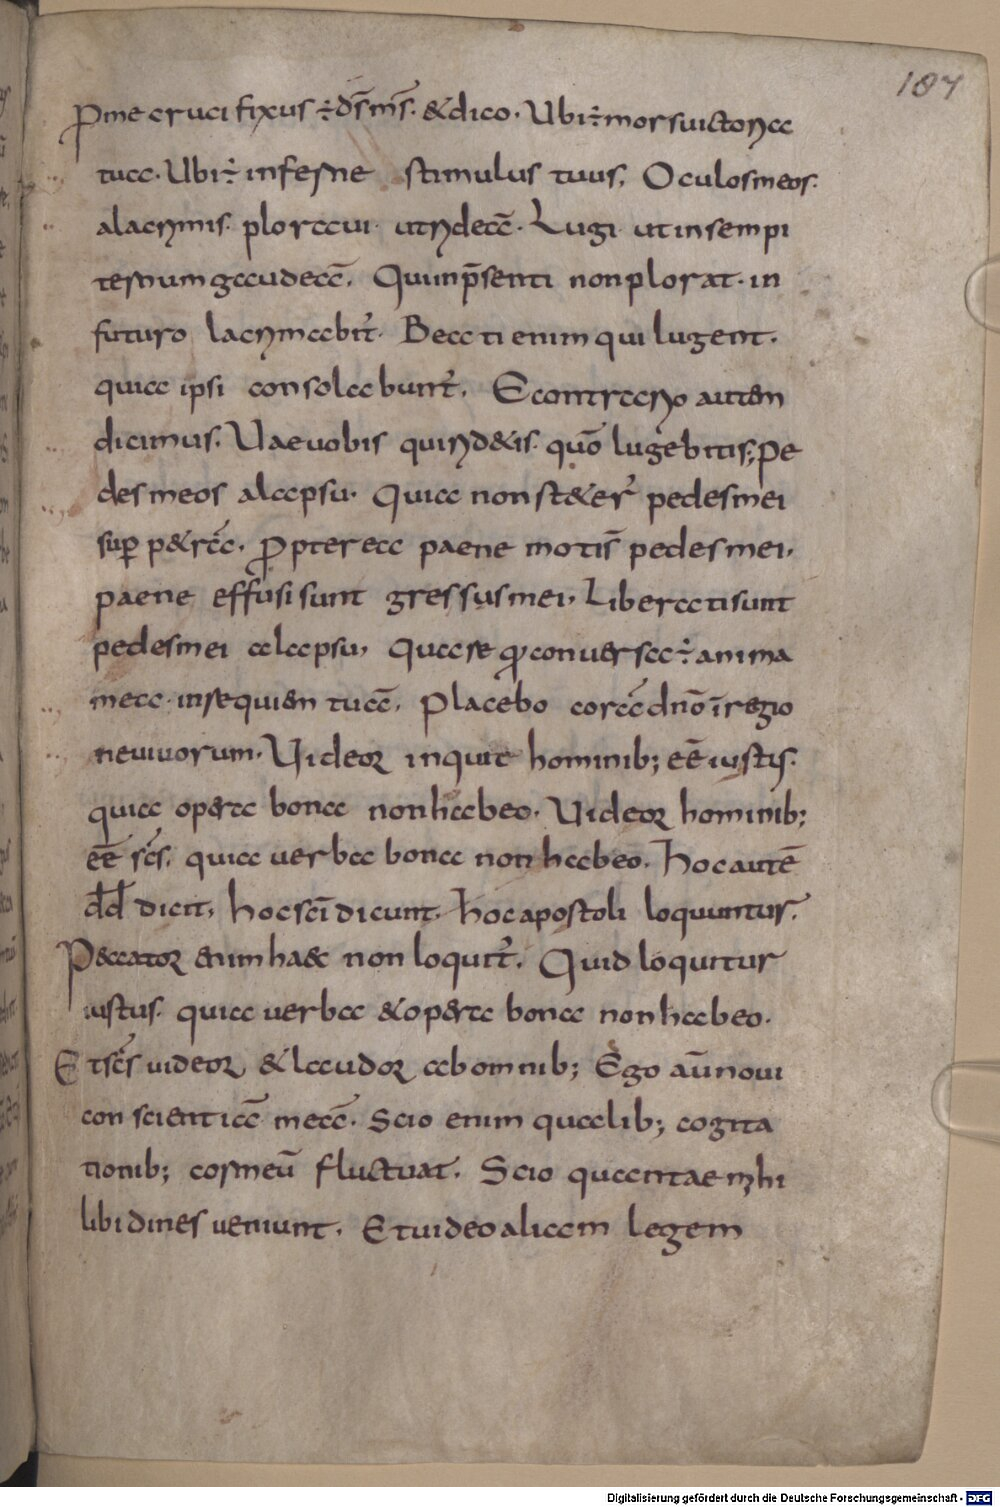 187
Pme crucifixus ÷ ds̄ ms̄. & dico. Ubi ÷ mors uictoria
tua. Ubi ÷ inferne stimulus tuus. Oculos meos
a lacrimis. ploraui ut rideā. Lugi ut in sempi
ternum gaudeā. Qui in p̄senti non plorat. in
futuro lacrimabit᷑. Beati enim qui lugent.
quia ipsi consolabunt᷑. E contrario autem
dicimus. Uae uobis qui rid&is. quō lugebitis; Pe
des meos a lapsu. Quia non st&er᷑ pedes mei
sup p&rā. Propterea paene moti s̄ pedes mei.
paene effusi sunt gressus mei. Liberati sunt
pedes mei a lapsu, Quare ꝙ conuersa ÷ anima
mea in requiem tuā. Placebo corā dn̄o ī regio
ne uiuorum. Uideor inquit hominib; eē iustis.
quia opera bona non habeo. Uideor hominib;
eē sc̄s. quia uerba bona non habeo. Hoc autē
dd̄ dicit, hoc sc̄i dicunt. Hoc apostoli loquuntur.
Peccator enim haec non loquit᷑. Quid loquitur
iustus. quia uerba & opera bona non habeo.
Et sc̄s uideor & laudor ab omnib; Ego aū noui
conscientiā meā. Scio enim qualib; cogita
tionib; cor meū fluctuat. Scio quantae mihi
libidines ueniunt. Et uideo aliam legem
Digitalisierung gefördert durch die Deutsche Forschungsgemeinschaft - DFG